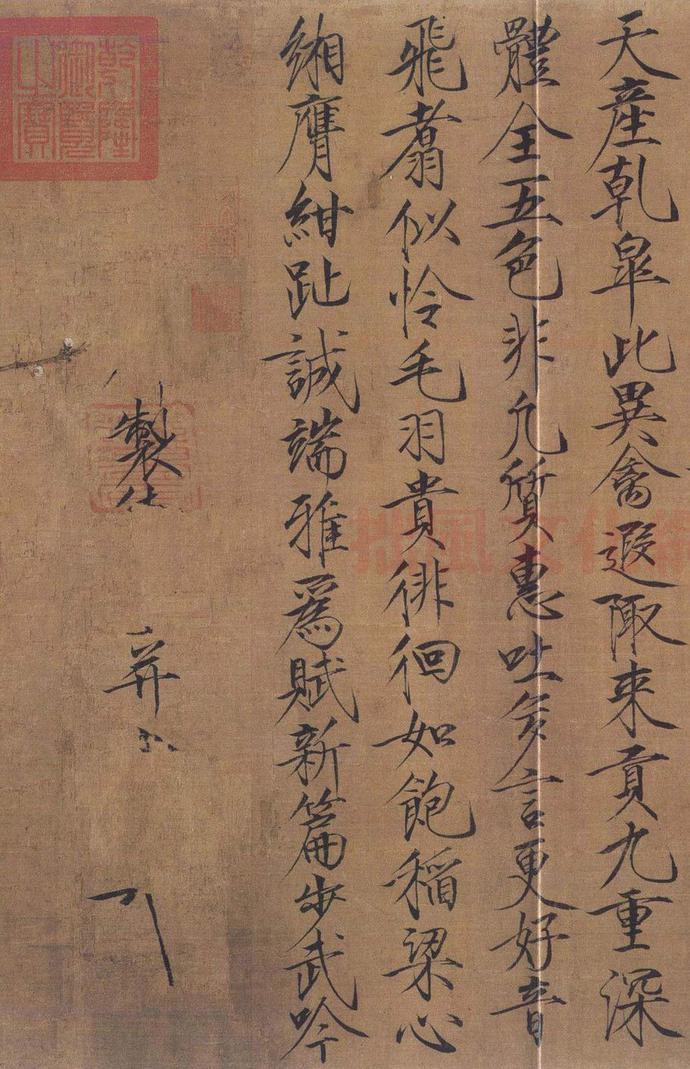 天産乹皐此異禽遐陬来貢九重深
體全五色非凡質惠吐多言更好音
飛翥似怜毛羽貴徘徊如飽稻粱心
緗膺紺趾誠端雅爲賦新篇步武吟
製
并
乾隆御覽之寶
拙風文化網